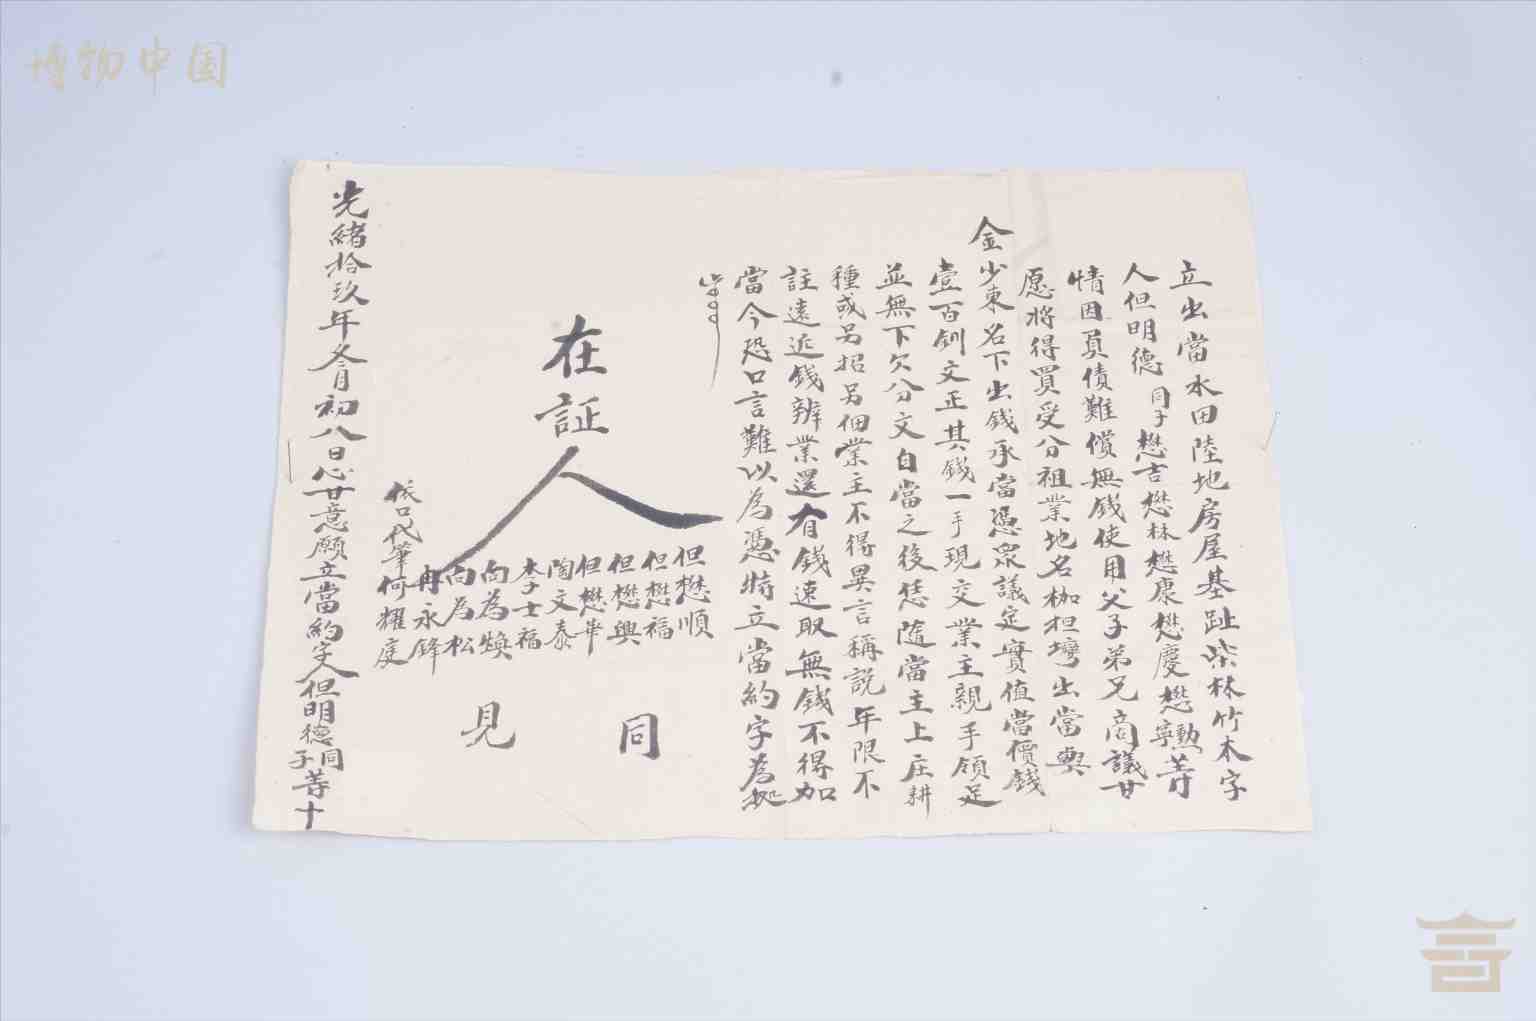 博物中国
立出當水田陸地房屋基趾柴林竹木字
人但明德同子懋吉懋林懋康懋慶懋勲懋寧等
情因負債難償無錢使用父子弟兄商議甘
愿將得買受分祖業地名枷担塆出當與
金少東名下出錢承當憑衆議定實值當價錢
壹百釧文正其錢一手現交業主親手領足
並無下欠分文自當之後恁隨當主上庄耕
種或另招另佃業主不得異言稱説年限不
註遠近錢辨業還有錢速取無錢不得加
當今恐口言難以為憑特立當約字為㨿
在証人
但懋順
但懋福
但懋興
但懋華
陶文泰
李士福
向為煥
向為松
冉永鋒
同見
依口代筆何耀庭
光緒拾玖年冬月初八日心甘意願立當約字人但明德同子等十